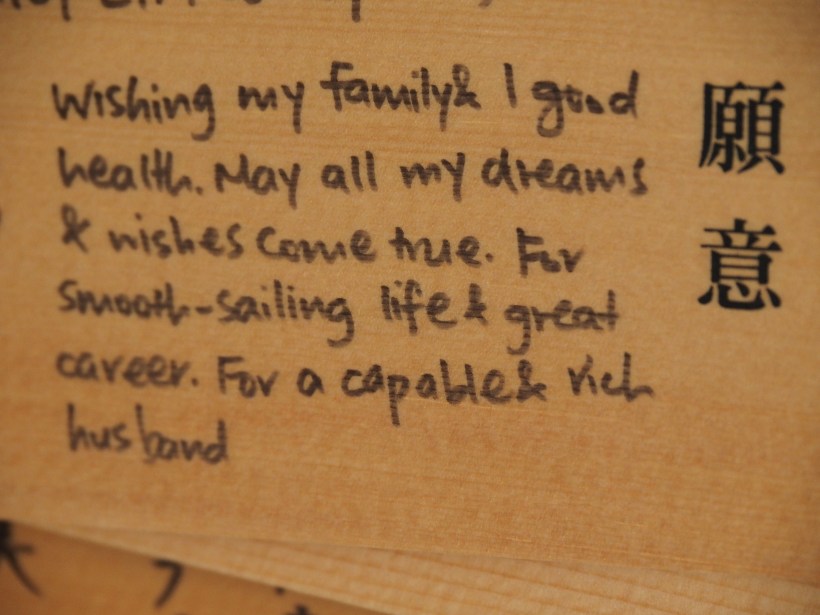 Wishing my family & I good
health. May all my dreams
& wishes come true. For
smooth-sailing life & great
career. For a capable & rich
husband
願意